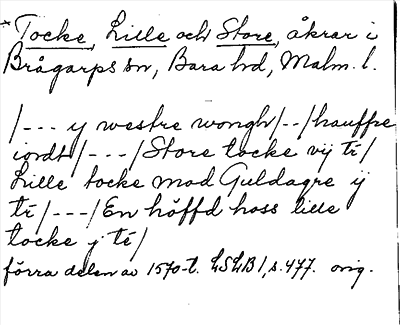 *Tocke, Lille och Store, åkrar i
Brågarps sn, Bara hd, Malm. l.
/--- y westre wongh/--/hauffre
iordt/---/Store tocke vij tr/
Lille tocke mod Guldagre ij
tr/---/En höffd hoss lille
tocke j té/
förra delen av 1570-t. LSLB 1, s. 477. orig.